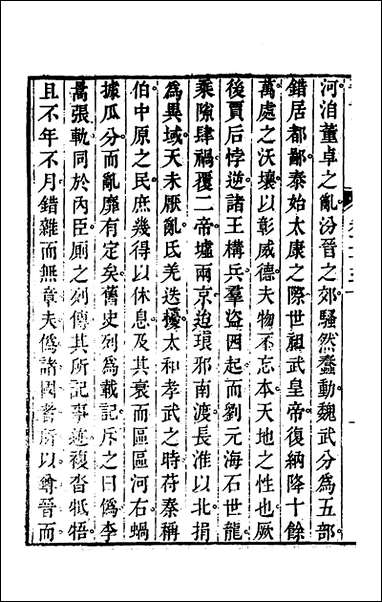 河洎董卓之亂汾晉之郊騷然蠢動魏武分為五部
錯居都鄙泰始太康之際世祖武皇帝復納降十餘
萬處之沃壤以彰威德夫物不忘本天地之性也厥
後賈后悖逆諸王構兵羣盜四起而劉元海石世龍
乘隙肆禍覆二帝墟兩京迫琅邪南渡長淮以北捐
為異域天未厭亂氐羌迭擾太和孝武之時苻秦稱
伯中原之民庶幾得以休息及其衰而區區河右蝸
據瓜分而亂靡有定矣舊史列為載記斥之曰僞李
暠張軌同於內臣廁之列傳其所記事迹複沓牴牾
且不年不月錯雜而無章夫僞諸國者所以尊晉而